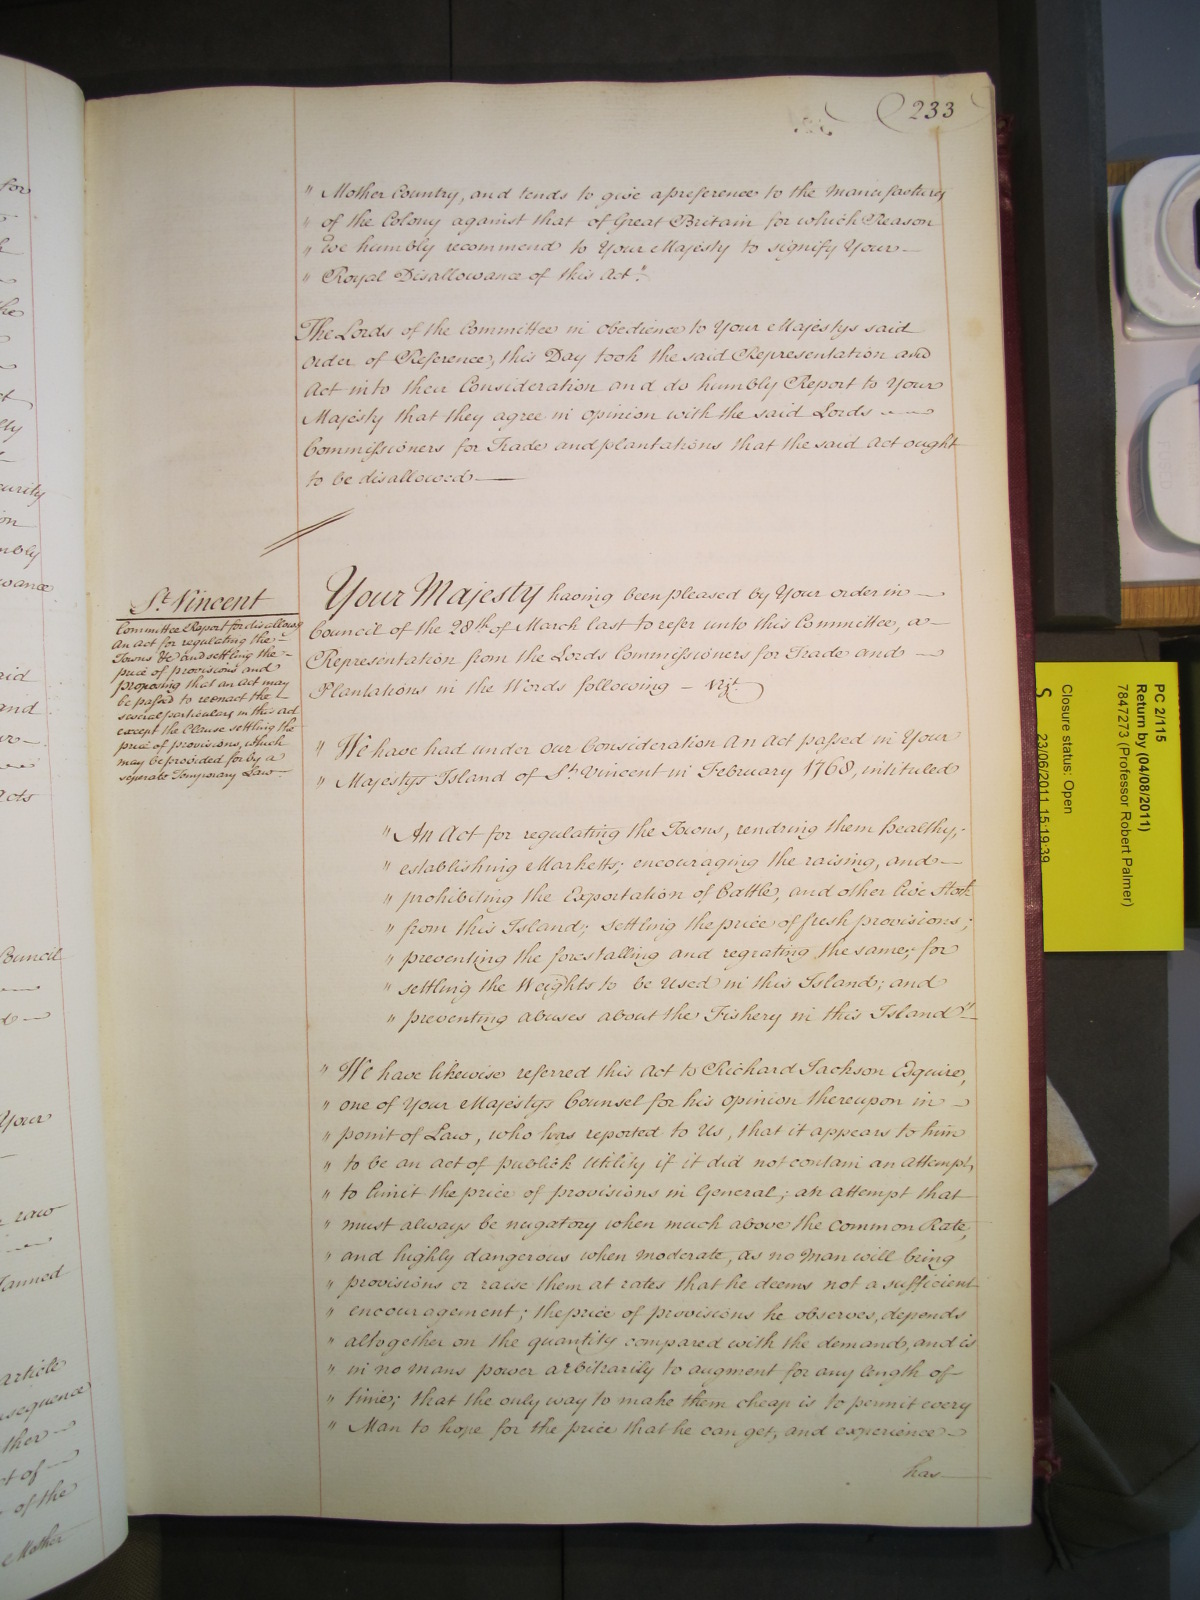 233
" Mother Country, and tends to give a preference to the Manufactures
" of the Colony against that of Great Britain for which Reason
" We humbly recommend to Your Majesty to signify Your —
" Royal Disallowance of this Act."
The Lords of the Committee in obedience to Your Majestys said
Order of Reference, this Day took the said Representation and
Act into their Consideration and do humbly Report to Your
Majesty that they agree in opinion with the said Lords —
Commissioners for Trade and plantations that the said Act ought
to be disallowed —
St. Vincent
Committee Report for disallowg
An Act for regulating the —
Towns &c and settling the —
price of provisions and
proposing that an Act may
be passed to reenact the —
several particulars in this Act
except the Clause settling the
price of provisions, which
may be provided for by a
seperate Temporary Law —
Your Majesty having been pleased by Your order in —
Council of the 28th of March last to refer unto this Committee, a —
Representation from the Lords Commissioners for Trade and —
Plantations in the Words following — Vizt.
" We have had under our Consideration An Act passed in Your
" Majestys Island of St. Vincent in February 1768, intituled
" An Act for regulating the Towns, rendring them healthy;
" establishing Marketts; encouraging the raising, and —
" prohibiting the Exportation of Cattle, and other live Stock
" from this Island; settling the price of fresh provisions;
" preventing the forestalling and regrating the same; for
" settling the Weights to be Used in this Island; and
" preventing abuses about the Fishery in this Island" —
" We have likewise referred this Act to Richard Jackson Esquire,
" one of Your Majestys Counsel for his opinion thereupon in —
" point of Law, who has reported to Us, that it appears to him
" to be an Act of publick Utility if it did not contain an Attempt,
" to limit the price of provisions in General; an attempt that
" must always be nugatory when much above the Common Rate,
" and highly dangerous when moderate, as no Man will bring
" provisions or raise them at rates that he deems not a sufficient
" encouragement; the price of provisions he observes, depends
" altogether on the quantity compared with the demand, and is
" in no mans power arbitrarily to augment for any length of —
" time; that the only way to make them cheap is to permit every
" Man to hope for the price that he can get, and experience —
has
PC 2/115
Return by (04/08/2011)
7847273 (Professor Robert Palmer)
Closure status: Open
S 23/06/2011 15:19:39
for
the
urity
mbly
wance
aid
and
Acts
Council
Your
raw
Tanned
article
ther —
of the
Mother